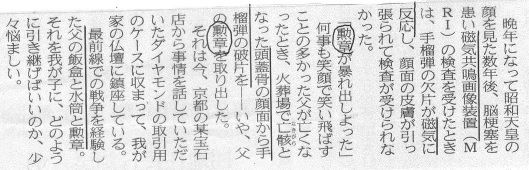 晩年になって昭和天皇の
顔を見た数年後、脳梗塞を
患い磁気共鳴画像装置（Ｍ
ＲＩ）の検査を受けたとき
は、手榴弾の欠片が磁気に
反応し、顔面の皮膚が引っ
張られて検査が受けられな
かった。
「勲章が暴れ出しよった」
何事も笑顔で笑い飛ばす
ことの多かった父が亡くな
ったとき、火葬場で亡骸と
なった頭蓋骨の顔面から手
榴弾の破片を――いや、父
の勲章を取り出した。
それは今、京都の某宝石
店から事情を話していただ
いたダイヤモンドの取引用
のケースに収まって、我が
家の仏壇に鎮座している。
最前線での戦争を経験し
た父の飯盒と水筒と勲章。
それを我が子に、どのよう
に引き継げばいいのか、少
々悩ましい。